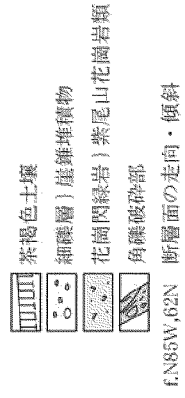 茶褐色土壌
細礫層）崖錐堆積物
花崗閃緑岩）紫尾山花崗岩類
角礫破砕部
f.N85W,62N 断層面の走向・傾斜